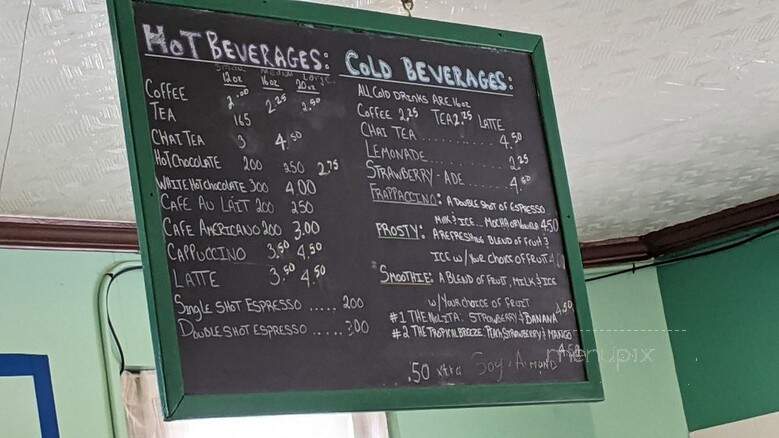 HOT BEVERAGES:
Small Medium Large
12oz 16oz 20oz
COFFEE 2.00 2.25 2.50
TEA 165
CHAI TEA 3 4.50
HOT CHOCOLATE 200 250 2.75
WHITE HOT CHOCOLATE 300 4.00
CAFE AU LAIT 200 250
CAFE AMERICANO 200 3.00
CAPPUCCINO 3.50 4.50
LATTE 3.50 4.50
SINGLE SHOT ESPRESSO ..... 200
DOUBLE SHOT ESPRESSO ..... 300
COLD BEVERAGES:
ALL COLD DRINKS ARE 16oz
COFFEE 2.25 TEA 2.25 LATTE
CHAI TEA .......... 4.50
LEMONADE .......... 2.25
STRAWBERRY-ADE ....... 4.50
FRAPPACCINO: A DOUBLE SHOT OF ESPRESSO
MILK & ICE... MOCHA OR 4.50
FROSTY: A REFRESHING BLEND OF FRUIT &
ICE W/ YOUR CHOICE OF FRUIT
SMOOTHIE: A BLEND OF FRUIT, MILK & ICE
W/ YOUR CHOICE OF FRUIT
#1 THE NOLITA: STRAWBERRY & BANANA 4.50
#2 THE TROPICAL BREEZE: PEACH STRAWBERRY & MANGO
.50 xtra Soy, Almond
menupix